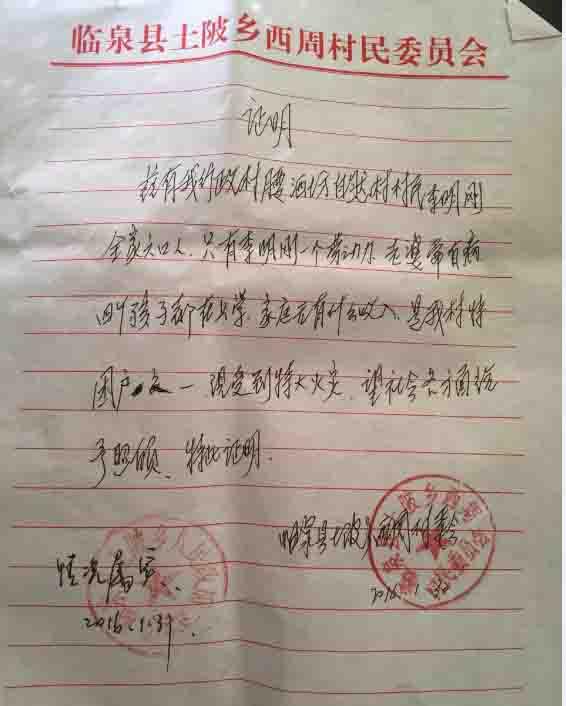 临泉县土陂乡西周村民委员会
证明
兹有我行政村腰酒坊自然村村民李明刚
全家六口人,只有李明刚一个劳动力,老婆常有病
四个孩子都在上学,家庭没有什么收入,是我村特
困户之一,现受到特大火灾,望社会各方面给
予照顾、特此证明.
临泉县土陂乡西周村委会
情况属实.
2016.1.31.